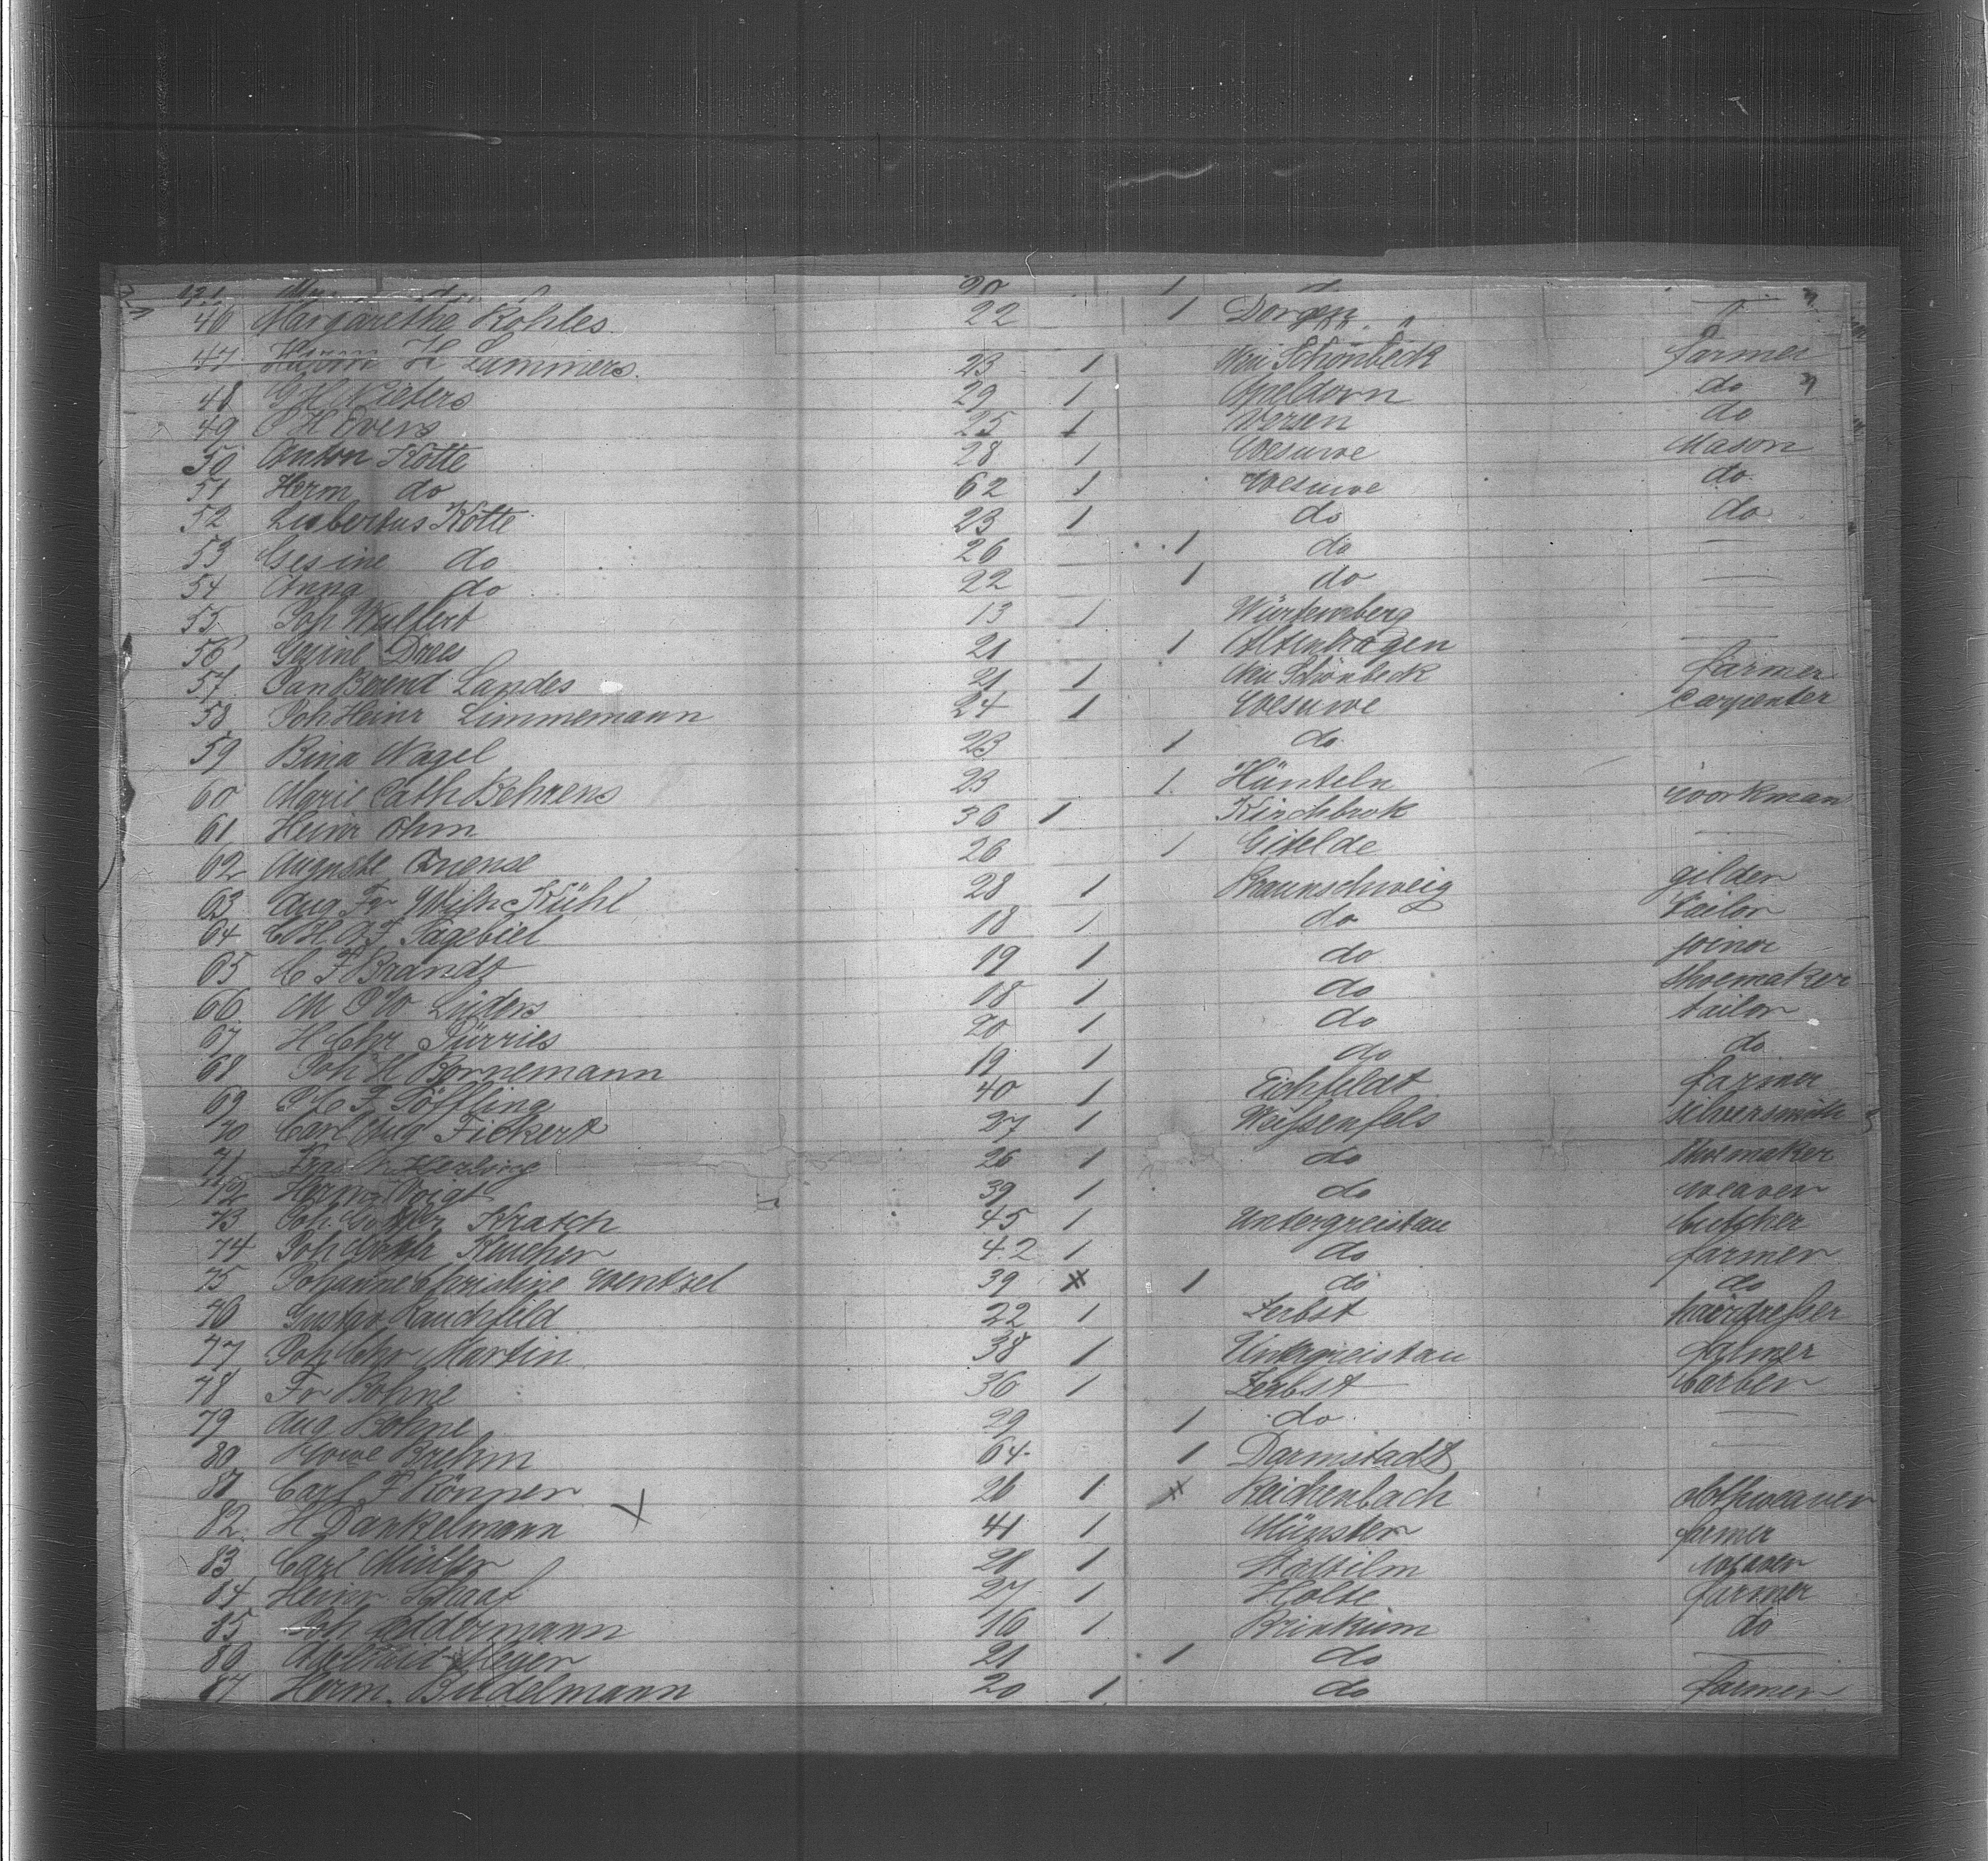 46 Margarethe Kohles 22 1 Dorgen
47 Herm H Lammers 23 1 Neu Schönbeck farmer
48 Pieters 29 1 Apeldorn do
49 H Evers 25 1 Versen do
50 Anton Kotte 28 1 Wesuwe Mason
51 Herm do 62 1 Wesuwe do
52 Lubertus Kotte 23 1 do do
53 Gesine do 26 1 do —
54 Anna do 22 1 do —
55 Joh Wulfert 13 1 Würtemberg
56 Gesine Drees 21 1 Altenhagen —
57 Jan Berend Landes 21 1 Neu Schönbeck farmer
58 Joh Heinr Limmemann 24 1 Wesuwe Carpenter
59 Bina Nagel 23 1 do
60 Marie Cath Behrens 23 1 Hünteln
61 Heinr Ohm 36 1 Kirchbrok workman
62 Auguste 26 1 Gitelde —
63 Aug Fr Wilh Kühl 28 1 Braunschweig gilder
64 Sagebiel 18 1 do tailor
65 C F Brandt 19 1 do joiner
66 M Lüders 18 1 do shoemaker
67 H Chr Pürries 20 1 do tailor
68 Joh H Bornemann 19 1 do do
69 Söffling 40 1 Eichfeldt farmer
70 Carl Aug Fickert 27 1 Weißenfels silversmith
71 Herling 26 1 do shoemaker
72 Herm Voigt 39 1 do weaver
73 Joh. Kratsch 45 1 Untergreislau butcher
74 Joh 42 1 do farmer
75 Johanne Christine Wentzel 39 1 do do
76 Gustav Rauchfeld 22 1 Zerbst hairdreßer
77 Joh Chr Martin 38 1 Untergreislau farmer
78 Fr Bohne 36 1 Zerbst barber
79 Aug Bohne 29 1 do —
80 Brehm 64 1 Darmstadt —
81 Carl F Könner 26 1 Reichenbach clothweaver
82 H Dankelmann X 41 1 Münster farmer
83 Carl Müller 28 1 Stadtilm weaver
84 Heinr Schaaf 27 1 Holte farmer
85 Joh 16 1 Brinkum do
86 Adelheid Meyer 21 1 do —
87 Herm. Büdelmann 20 1 do farmer